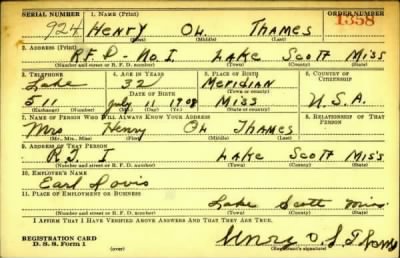 SERIAL NUMBER 1. NAME (Print) ORDER NUMBER
924 HENRY OL THAMES 1358
(First) (Middle) (Last)
2. ADDRESS (Print)
R.F.D - No. I LAKE SCOTT MISS
(Number and street or R. F. D. number) (Town) (County) (State)
3. TELEPHONE 4. AGE IN YEARS 5. PLACE OF BIRTH 6. COUNTRY OF CITIZENSHIP
Lake 32 MERIDIAN
DATE OF BIRTH (Town or county)
511 July 11 1908 MISS U.S.A.
(Exchange) (Number) (Mo.) (Day) (Yr.) (State or country)
7. NAME OF PERSON WHO WILL ALWAYS KNOW YOUR ADDRESS 8. RELATIONSHIP OF THAT PERSON
Mrs Henry OL THAMES
(Mr., Mrs., Miss) (First) (Middle) (Last)
9. ADDRESS OF THAT PERSON
I LAKE SCOTT MISS
(Number and street or R. F. D. number) (Town) (County) (State)
10. EMPLOYER'S NAME
Earl
11. PLACE OF EMPLOYMENT OR BUSINESS
Lake Scott Miss
(Number and street or R. F. D. number) (Town) (County) (State)
I AFFIRM THAT I HAVE VERIFIED ABOVE ANSWERS AND THAT THEY ARE TRUE.
REGISTRATION CARD
D. S. S. Form 1 (over) Henry
(Registrant's signature)